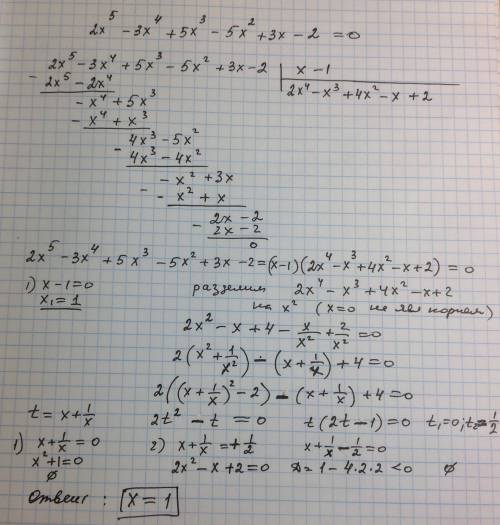 2x⁵ - 3x⁴ + 5x³ - 5x² + 3x - 2 = 0
2x⁵ - 3x⁴ + 5x³ - 5x² + 3x - 2 | x - 1
- 2x⁵ - 2x⁴ 2x⁴ - x³ + 4x² - x + 2
- x⁴ + 5x³
- - x⁴ + x³
4x³ - 5x²
- 4x³ - 4x²
- x² + 3x
- - x² + x
2x - 2
- 2x - 2
0
2x⁵ - 3x⁴ + 5x³ - 5x² + 3x - 2 = (x-1)(2x⁴ - x³ + 4x² - x + 2) = 0
1) x - 1 = 0 разделим 2x⁴ - x³ + 4x² - x + 2
x₁ = 1 на x² (x=0 не явл корнем)
2x² - x + 4 - x/x² + 2/x² = 0
2(x² + 1/x²) - (x + 1/x) + 4 = 0
2((x + 1/x)² - 2) - (x + 1/x) + 4 = 0
t = x + 1/x 2t² - t = 0 t(2t - 1) = 0 t₁ = 0; t₂ = 1/2
1) x + 1/x = 0 2) x + 1/x = + 1/2 x + 1/x - 1/2 = 0
x² + 1 = 0 2x² - x + 2 = 0 D = 1 - 4·2·2 < 0 ∅
∅
Ответ: x = 1